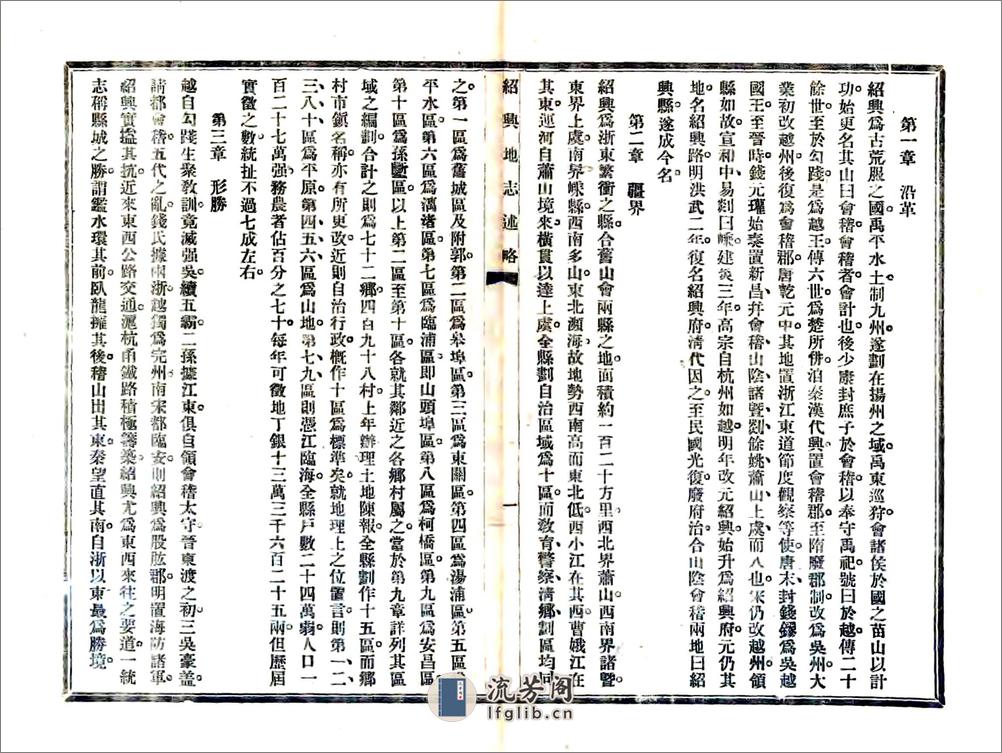 第一章　沿革
紹興爲古荒服之國禹平水土制九州遂劃在揚州之域禹東巡狩會諸侯於國之苗山以計
功始更名其山曰會稽會稽者會計也後少康封庶子於會稽以奉守禹祀號曰於越傳二十
餘世至於勾踐是爲越王傳六世爲楚所併洎秦漢代興置會稽郡至隋廢郡制改爲吳州大
業初改越州後復爲會稽郡唐乾元中其地置浙江東道節度觀察等使唐末封錢鏐爲吳越
國王至晉時錢元瓘始奏置新昌幷會稽山陰諸曁剡餘姚蕭山上虞而八也宋仍改越州領
縣如故宣和中易剡曰嵊建炎三年高宗自杭州如越明年改元紹興始升爲紹興府元仍其
地名紹興路明洪武二年復名紹興府淸代因之至民國光復廢府治合山陰會稽兩地曰紹
興縣遂成今名
第二章　疆界
紹興爲浙東繁衝之縣合舊山會兩縣之地面積約一百二十方里西北界蕭山西南界諸曁
東界上虞南界嵊縣西南多山東北瀕海故地勢西南高而東北低西小江在其西曹娥江在
其東運河自蕭山境來橫貫以達上虞全縣劃自治區域爲十區而敎育警察淸鄉劃區均同
紹興地志述略
一
之第一區爲舊城區及附郭第二區爲皋埠區第三區爲東關區第四區爲湯浦區第五區爲
平水區第六區爲漓渚區第七區爲臨浦區卽山頭埠區第八區爲柯橋區第九區爲安昌區
第十區爲孫鄽區以上第二區至第十區各就其鄰近之各鄉村屬之當於第九章詳列其區
域之編劃合計之則爲七十二鄉四百九十八村上年辦理土地陳報全縣劃作十五區而鄉
村市鎭名稱亦有所更改近則自治行政槪作十區爲標準矣就地理上之位置言則第一二
三八十區爲平原第四五六區爲山地第七九區則憑江臨海全縣戶數二十四萬弱人口一
百二十七萬强務農者佔百分之七十每年可徵地丁銀十三萬三千六百二十五兩但歷屆
實徵之數統扯不過七成左右
第三章　形勝
越自勾踐生聚敎訓竟滅强吳續五霸二孫據江東俱自領會稽太守晉東渡之初三吳豪蓋
請都會稽五代之亂錢氏據兩浙越獨爲完州南宋都臨安則紹興爲股肱郡明置海防諸軍
紹興實搤其抗近來東西公路交通滬杭甬鐵路積極籌築紹興尤爲東西來往之要道一統
志稱縣城之勝謂鑑水環其前臥龍擁其後稽山出其東秦望直其南自浙以東最爲勝境
流芳阁
lfglib.cn